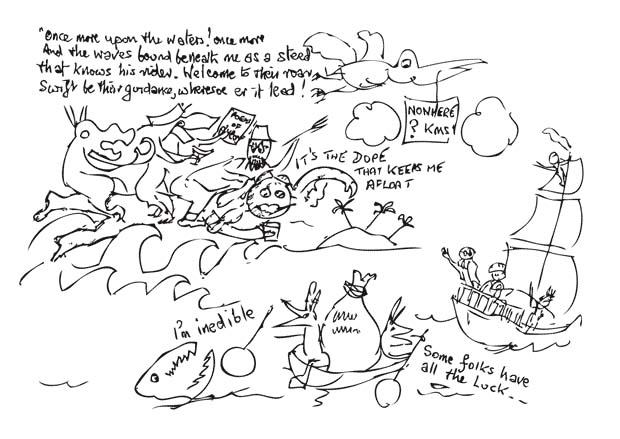 "Once more upon the waters! once more
And the waves bound beneath me as a steed
that knows his rider. Welcome to their roar,
Swift be their guidance, wheresoe'er it lead!
POEMS
OF
NOWHERE
? KMS
IT'S THE DOPE
THAT KEEPS ME
AFLOAT
i'm inedible
Some folks have
all the Luck...